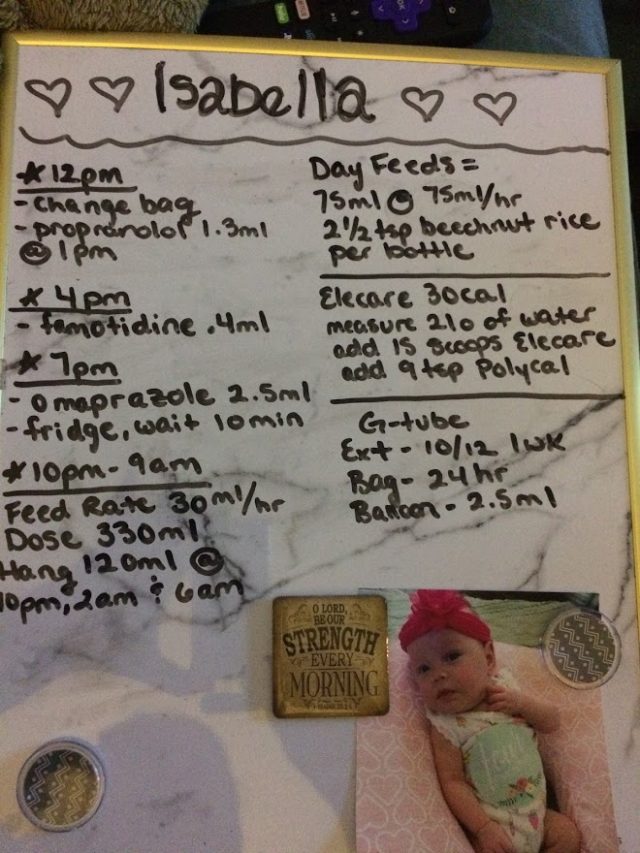 Isabella
*12pm
- change bag
- propranolol 1.3ml
@ 1pm
* 4pm
- famotidine .4ml
* 7pm
- omaprazole 2.5ml
- fridge, wait 10min
*10pm - 9am
Feed Rate 30ml/hr
Dose 330ml
Hang 120ml @
10pm, 2am & 6am
Day Feeds =
75ml @ 75ml/hr
2 1/2 tsp beechnut rice
per bottle
Elecare 30cal
measure 210 of water
add 15 scoops Elecare
add 9 tsp Polycal
G-tube
Ext - 10/12 1wk
Bag - 24hr
Balloon - 2.5ml
O LORD,
BE OUR
STRENGTH
EVERY
MORNING